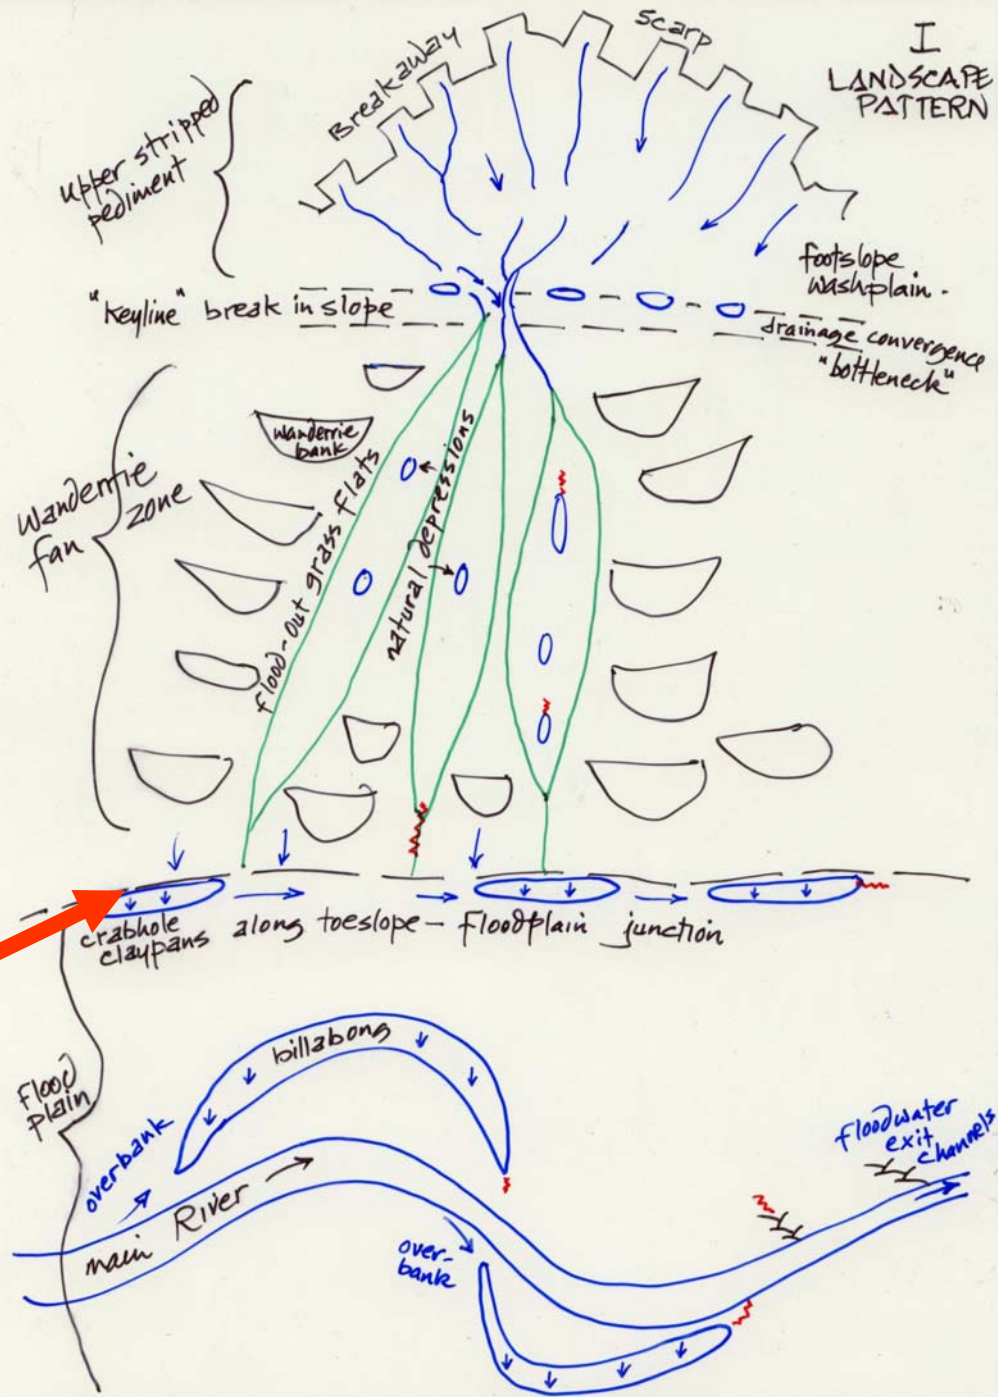 I
LANDSCAPE
PATTERN
Breakaway
scarp
upper stripped
pediment
footslope
washplain.
"keyline" break in slope
drainage convergence
"bottleneck"
wanderrie
bank
Wanderrie
fan zone
flood-out grass flats
natural depressions
crabhole
claypans along toeslope – floodplain junction
billabong
flood
plain
overbank
main River
over-
bank
floodwater
exit
channels